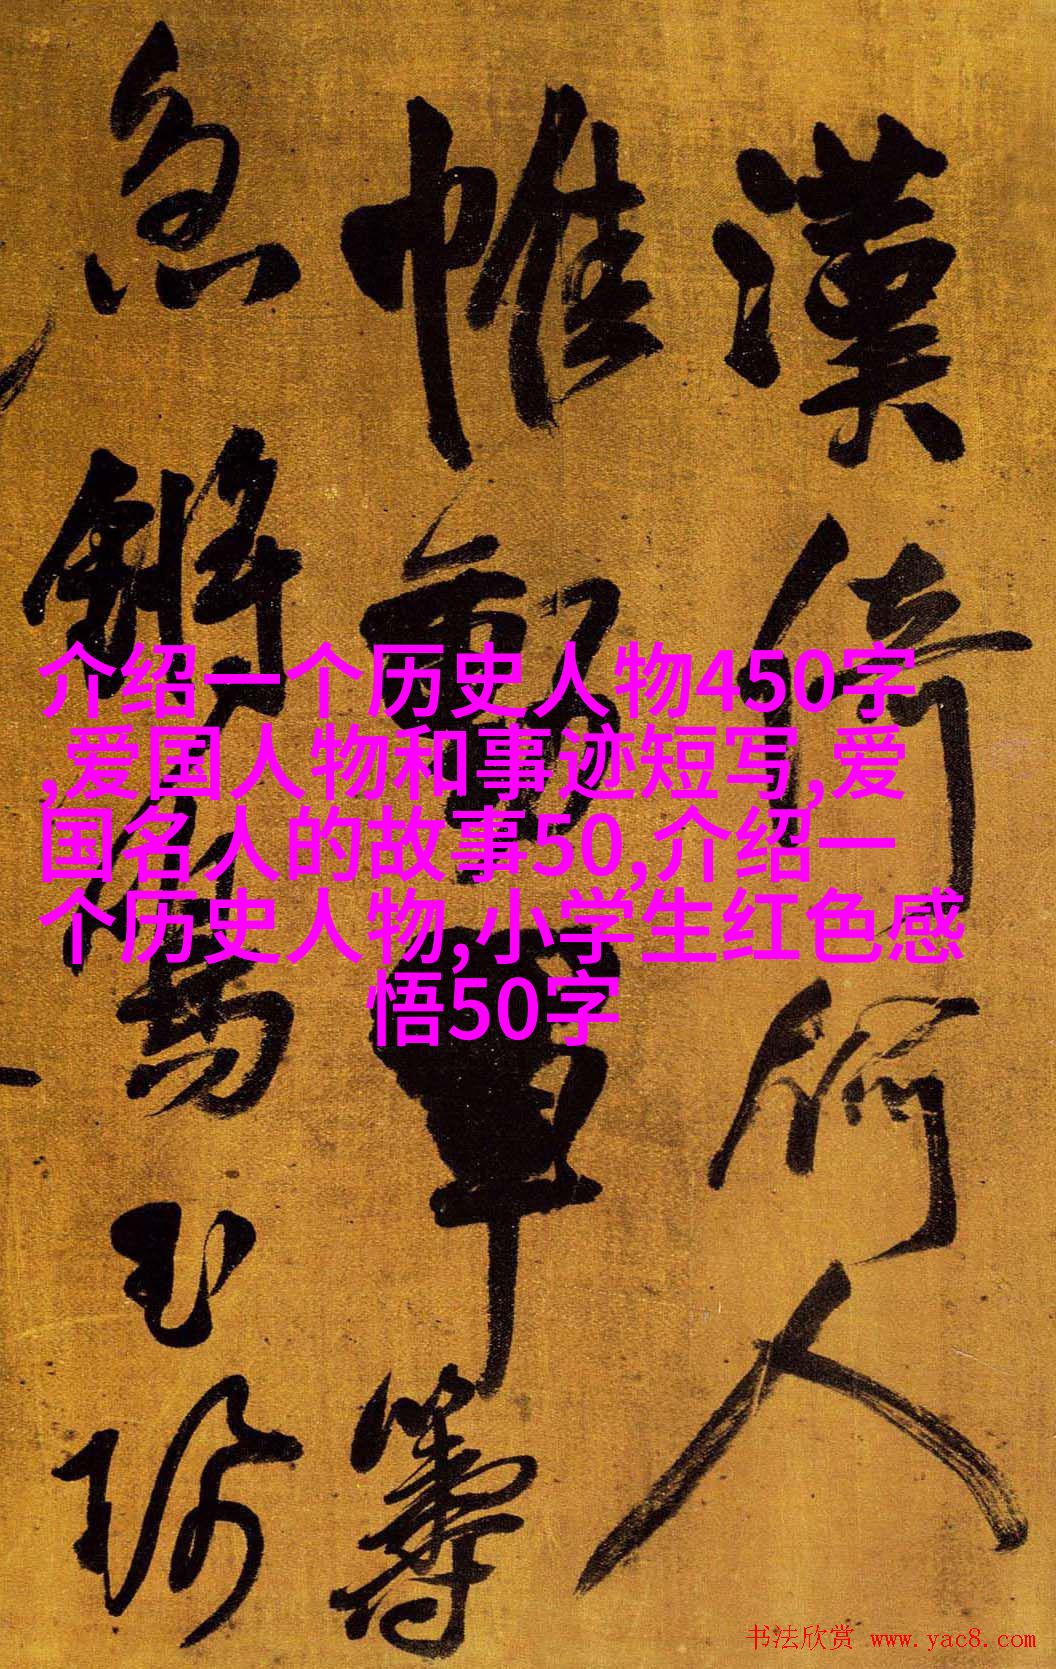 漢倚何人
帷
軍籌
急
介绍一个历史人物450字
,爱国人物和事迹短写,爱
国名人的故事50,介绍一
个历史人物,小学生红色感
悟50字
书法欣赏 www.yac8.com